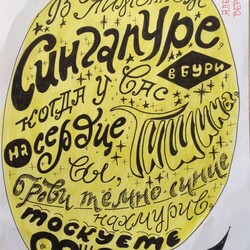 Сингапуре,
в бури
когда у вас
на сердце
Тишина
вы,
брови тёмно-синие
нахмурив,
тоскуете
АЛЕ
ВЕР